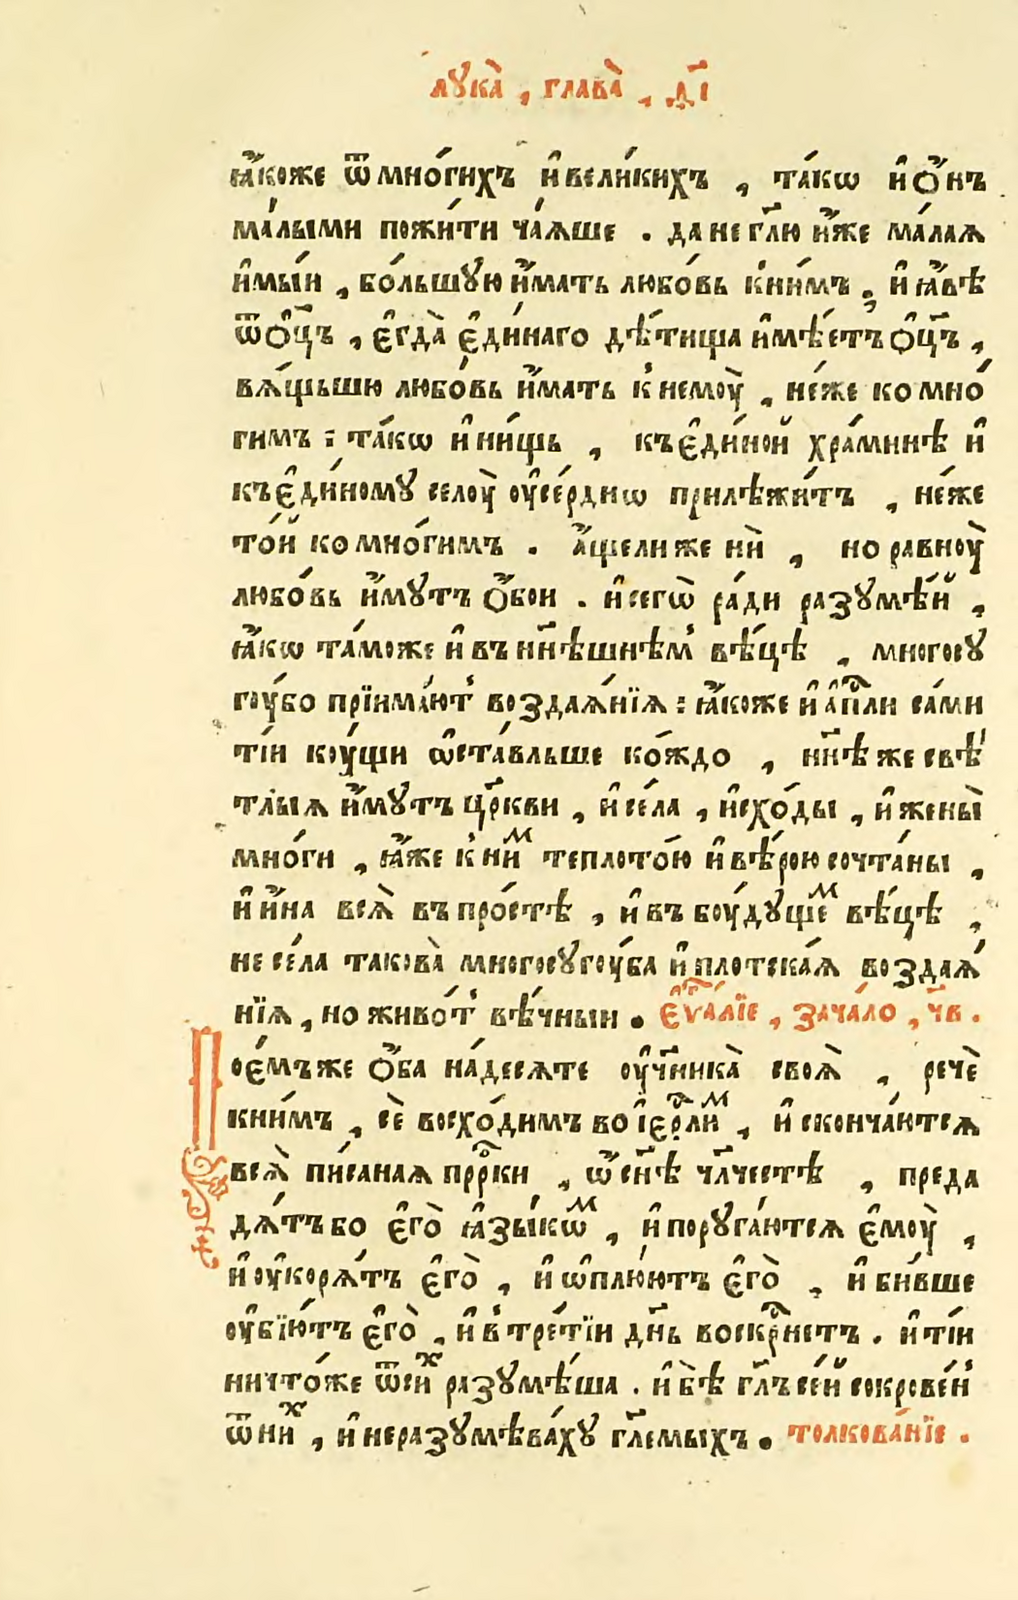 лꙋка̀ , глава̀ , д҃і
ꙗ҆́коже ѿ мно́гихъ и҆ вели́кихъ , та́кѡ и҆ ѻ҆́нъ
ма́лыми пожи́ти ча́ѧше . да не гл҃ю и҆́же ма́лаѧ
и҆мы́и , бо́льшꙋю и҆́мать любо́вь к ни́мъ . и҆ ꙗ҆́вѣ
ѿ ѻ҆ц҃ъ , є҆гда̀ є҆ди́наго дѣ́тища и҆мѣ́етъ ѻ҆ц҃ъ ,
вѧ́щьшю любо́вь и҆́мать к немоу̀ , не́же ко мно́
гимъ : та́кѡ и҆ ни́щь , къ є҆ди́ной хра́минѣ и҆
къ є҆ди́номꙋ селоу̀ оу҆се́рднѡ прилѣжи́тъ , не́же
то́й ко мно́гимъ . а҆́щели же нѝ , но равноу̀
любо́вь и҆́мꙋтъ ѻ҆́бои . и҆ сегѡ̀ ра́ди разꙋмѣ́й ,
ꙗ҆́кѡ та́може и҆ въ нн҃ѣшнѣм вѣ́цѣ , многосꙋ
гоу́бо прїима́ют воздаѧ́нїѧ : ꙗ҆́коже и҆ а҆пⷭ҇ли са́ми
ті́и коу́щи ѡ҆ста́вльше ко́ждо , нн҃ѣ же свѣ́
тлыѧ и҆́мꙋтъ цр҃кви , и҆ се́ла , и҆схо́ды , и҆ жены̀
мно́ги , ꙗ҆́же к ниⷨ теплото́ю и҆ вѣ́рою сочта́ны ,
и҆ и҆́на всѧ̀ въ про́стѣ , и҆ въ боу́дꙋщеⷨ вѣ́цѣ ,
не се́ла такова̀ многосꙋгоу́ба и҆ плотска́ѧ воздаѧ́
нїѧ , но живо́т вѣ́чныи . є҆ѵⷢ҇алїе , зача́ло , ч҃в .
Поє́мъже ѻ҆́ба на́десѧте оу҆ч҃ника̀ своѧ̀ , речѐ
к ни́мъ , сѐ восхо́димъ во і҆ерⷭ҇лиⷨ , и҆ сконча́ютсѧ
всѧ̀ пи́санаѧ прⷪ҇рки , ѡ҆ сн҃ѣ чл҃честѣ , преда
дѧ́тъ бо є҆го̀ ꙗ҆зы́кѡⷨ , и҆ порꙋга́ютсѧ є҆моу̀ ,
и҆ оу҆корѧ́тъ є҆го̀ , и҆ ѡ҆плюю́тъ є҆го̀ , и҆ би́вше
оу҆бїю́тъ є҆го̀ , и҆ в тре́тїи дн҃ь воскрⷭ҇нетъ . и҆ ті́и
ничто́же ѿ сиⷯ разꙋмѣ́ша . и҆ бѣ̀ гл҃ъ се́й сокрове́н
ѿ ниⷯ , и҆ неразꙋмѣва́хꙋ гл҃емыхъ . толкова́нїе .